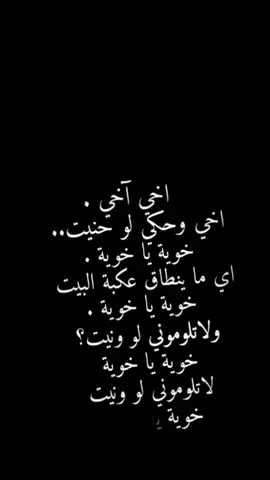 اخي آخي .
اخي وحكي لو حنيت..
خوية يا خوية .
اي ما ينطاق عكبة البيت
خوية يا خوية .
ولاتلوموني لو ونيت؟
خوية يا خوية
لاتلوموني لو ونيت
خوية